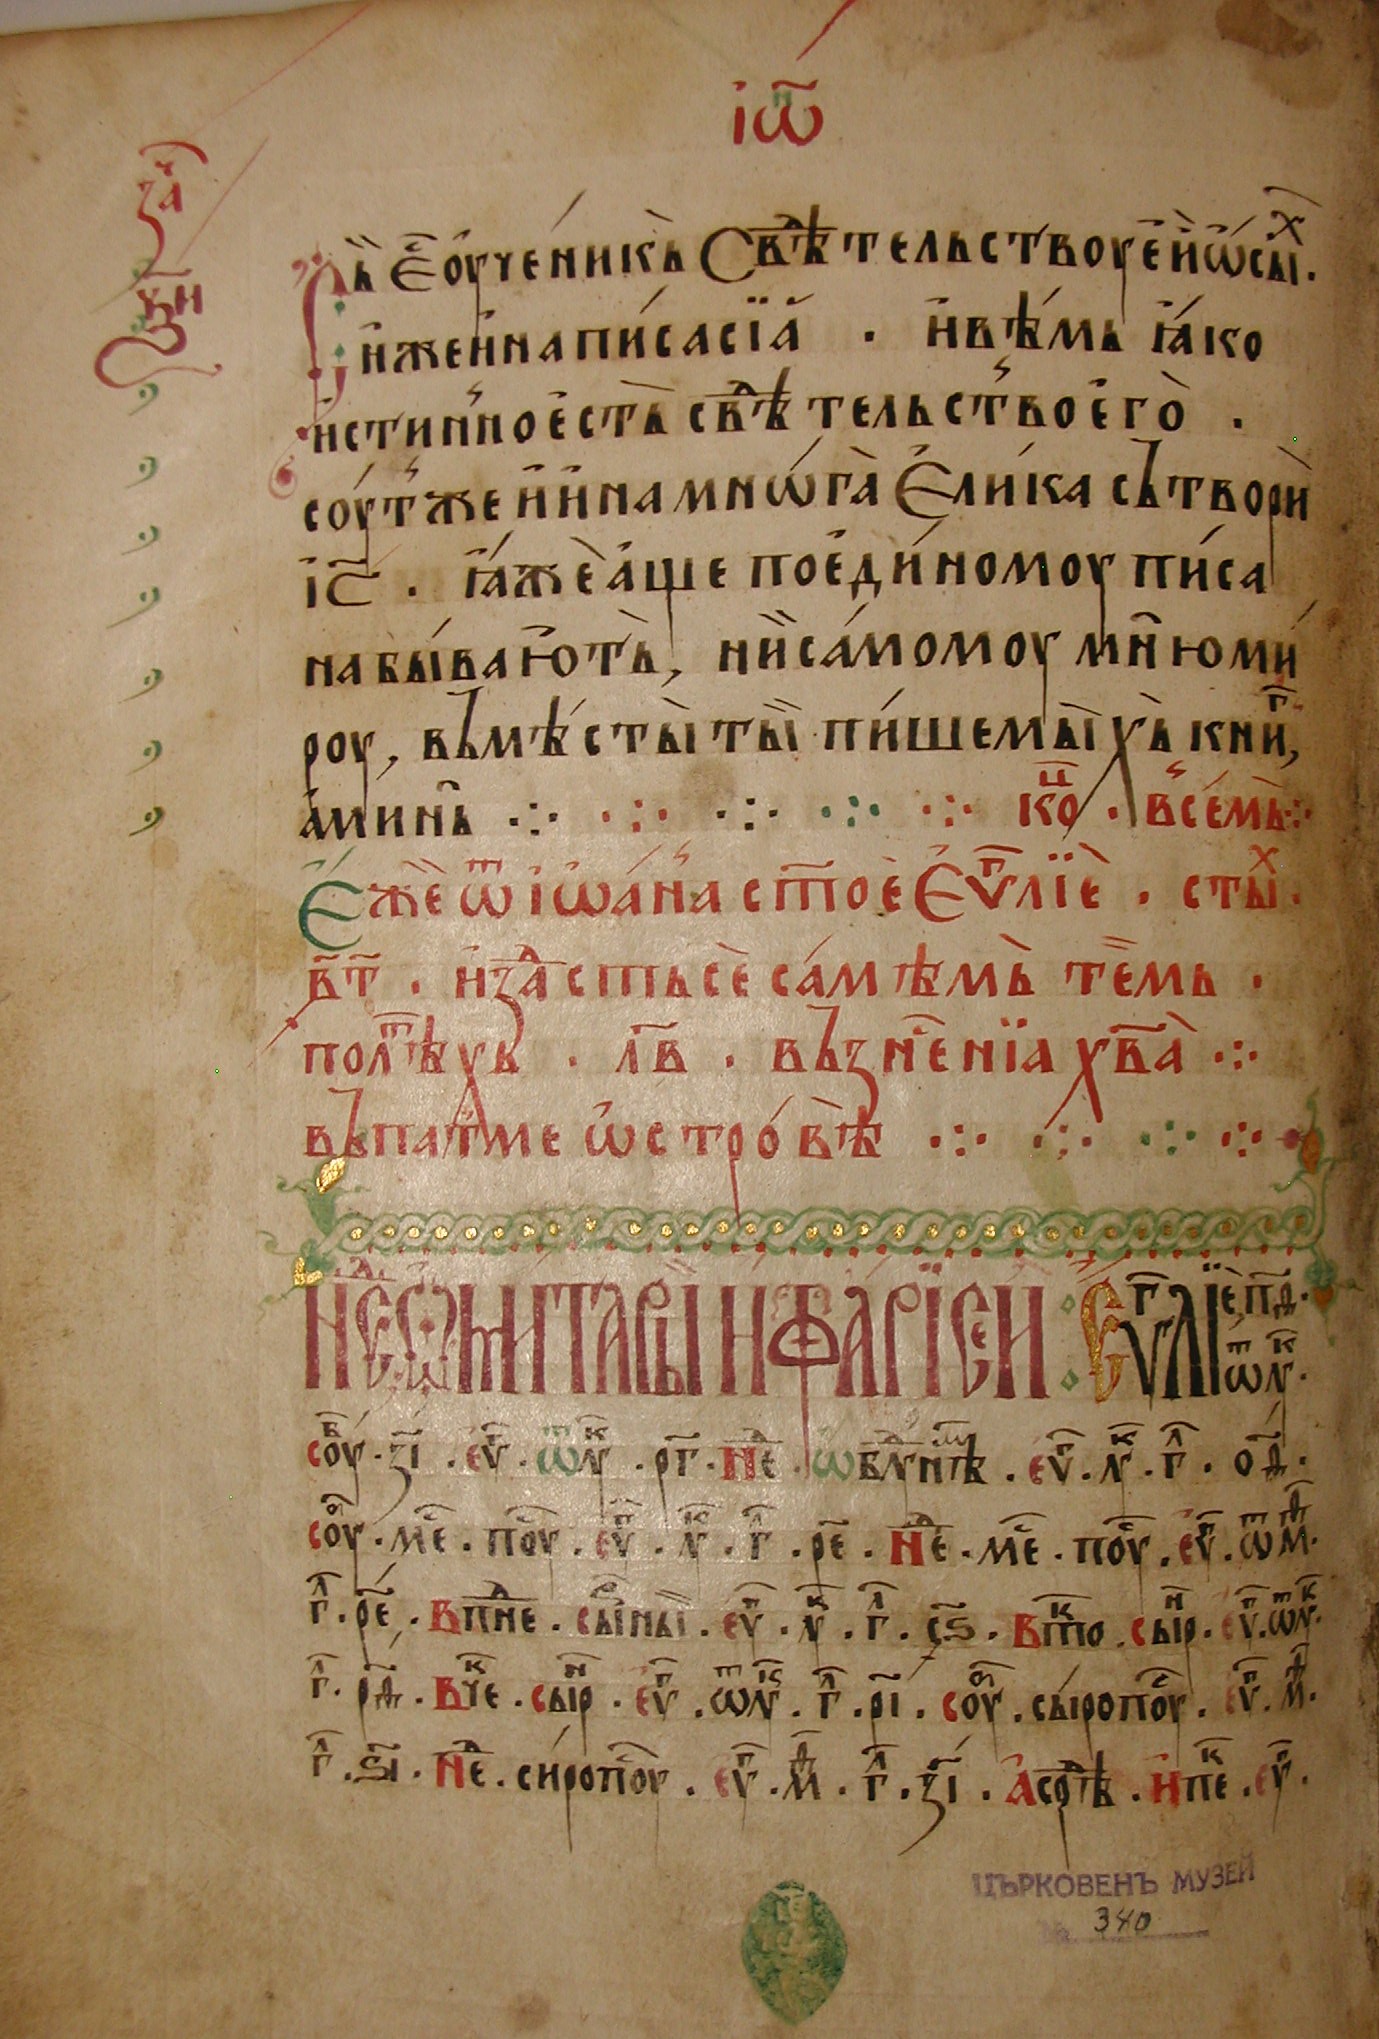 і҆ѡ҃
за҇ч
Сь̀ є҆́ оу҆чени́кь Свѣ́тельствоуе҆и҆ ѡ҆́ сыⷯ.
и҆же и҆написа сїа̀ . и҆вѣ́мь ꙗ҆́ко
и҆стин'но е҆сть̀ свѣтельст'во е҆го̀ .
соу́т' же и҆ и҆на мнѡ́га̀ Є҆ли́ка сътвори̏
і҆с҃ . ꙗ҆́же̏ а҆ще по е҆ди́номоу пи́са
на быва́ют҆ь̀, ни̏ са́момоу мн҆ю ми́
роу, въмѣ́сты̀ ты̏ пи́шемы̀хь̀ книⷢ҇,
а҆ми́нь ·:· ·:· ·:· ·:· ·:· коⷰ҇ . вьсе́мь̀ ·:·
Є҆же̏ ѿ і҆ѡа́н'на ст҃ое̏ Є҆ѵⷢ҇лїе̏ . стыⷯ.
в҃т҃ . и҆зⷣа́сть се̏ са́мѣмь̀ те̏мь .
по лⷮѣхь . л҃в . възнⷭ҇енїа хв҃а̀ ·:·
въпат'ме ѡ҆стро́вѣ̏ ·:· ·:· ·:· ·:·
Неⷣ ѡ҆ мытары̏ и҆ фарїсеи : Єѵⷢ҇лїе̏ п҃д.
ѿ лⷦ҇ꙋ.
соуⷠ . з҃і . еѵⷢ҇ . ѿ лⷦ҇ꙋ . р҃г . неⷣ . ѡ҆ блꙋⷣнѣⷨ . еѵⷢ҇ . лⷦ҇ꙋ . гⷧ҇ . о҃д.
соуⷠ . меⷭ҇ . поуⷭ҇ . еѵⷢ҇ . лⷦ҇ꙋ . гⷧ҇ . р҃е . неⷣ . меⷭ҇ . поуⷭ҇ . еѵⷢ҇ . ѿ мⷴ҇.
гⷧ҇ . р҃ѕ . Впнеⷣ . сы́рны̏ . еѵⷢ҇ . лⷦ҇ꙋ . гⷧ҇ . с҃ѕ . Втⷦ҇о . сырⷩ . еѵⷢ҇ . ѿ лⷦ҇ꙋ.
гⷧ҇ . р҃д . Вчⷦ҇е . сырⷩ . еѵⷢ҇ . ѿ лⷦ҇ꙋ . гⷧ҇ . р҃і . соуⷠ . сы́ропоуⷭ҇ . еѵⷢ҇ . мⷴ҇.
гⷧ҇ . ѕ҃і . неⷣ . си́ропоуⷭ҇ . еѵⷢ҇ . мⷴ҇ . гⷧ҇ . з҃і . А҆срⷣѣ . и҆пⷦ҇е . еѵⷢ҇ .
ЦЪРКОВЕНЪ МУЗЕЙ
№ 340